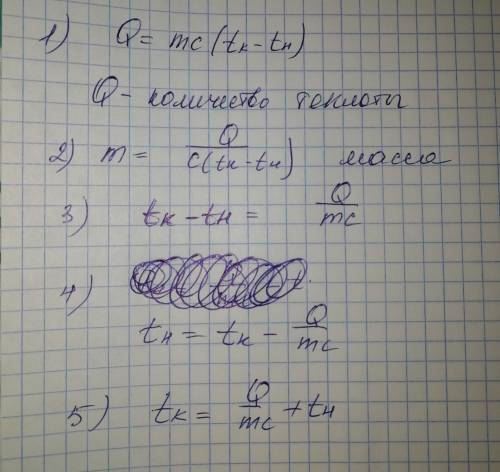 1) Q = mc(tк - tн)
Q - количество теплоты
2) m = Q / c(tк - tн) масса
3) tк - tн = Q / mc
4)
tн = tк - Q / mc
5) tк = Q / mc + tн